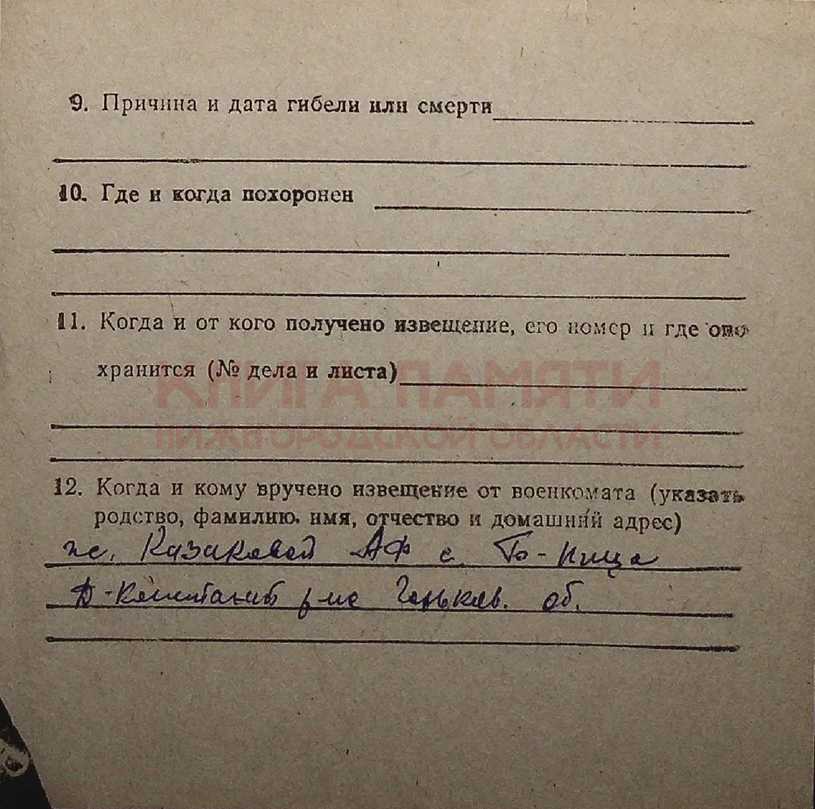 9. Причина и дата гибели или смерти
10. Где и когда похоронен
11. Когда и от кого получено извещение, его номер и где оно
хранится (№ дела и листа)
КНИГА ПАМЯТИ
НИЖЕГОРОДСКОЙ ОБЛАСТИ
12. Когда и кому вручено извещение от военкомата (указать
родство, фамилию, имя, отчество и домашний адрес)
ж. Казаковой АФ с.
Д-Констант р-не Горьков. об.